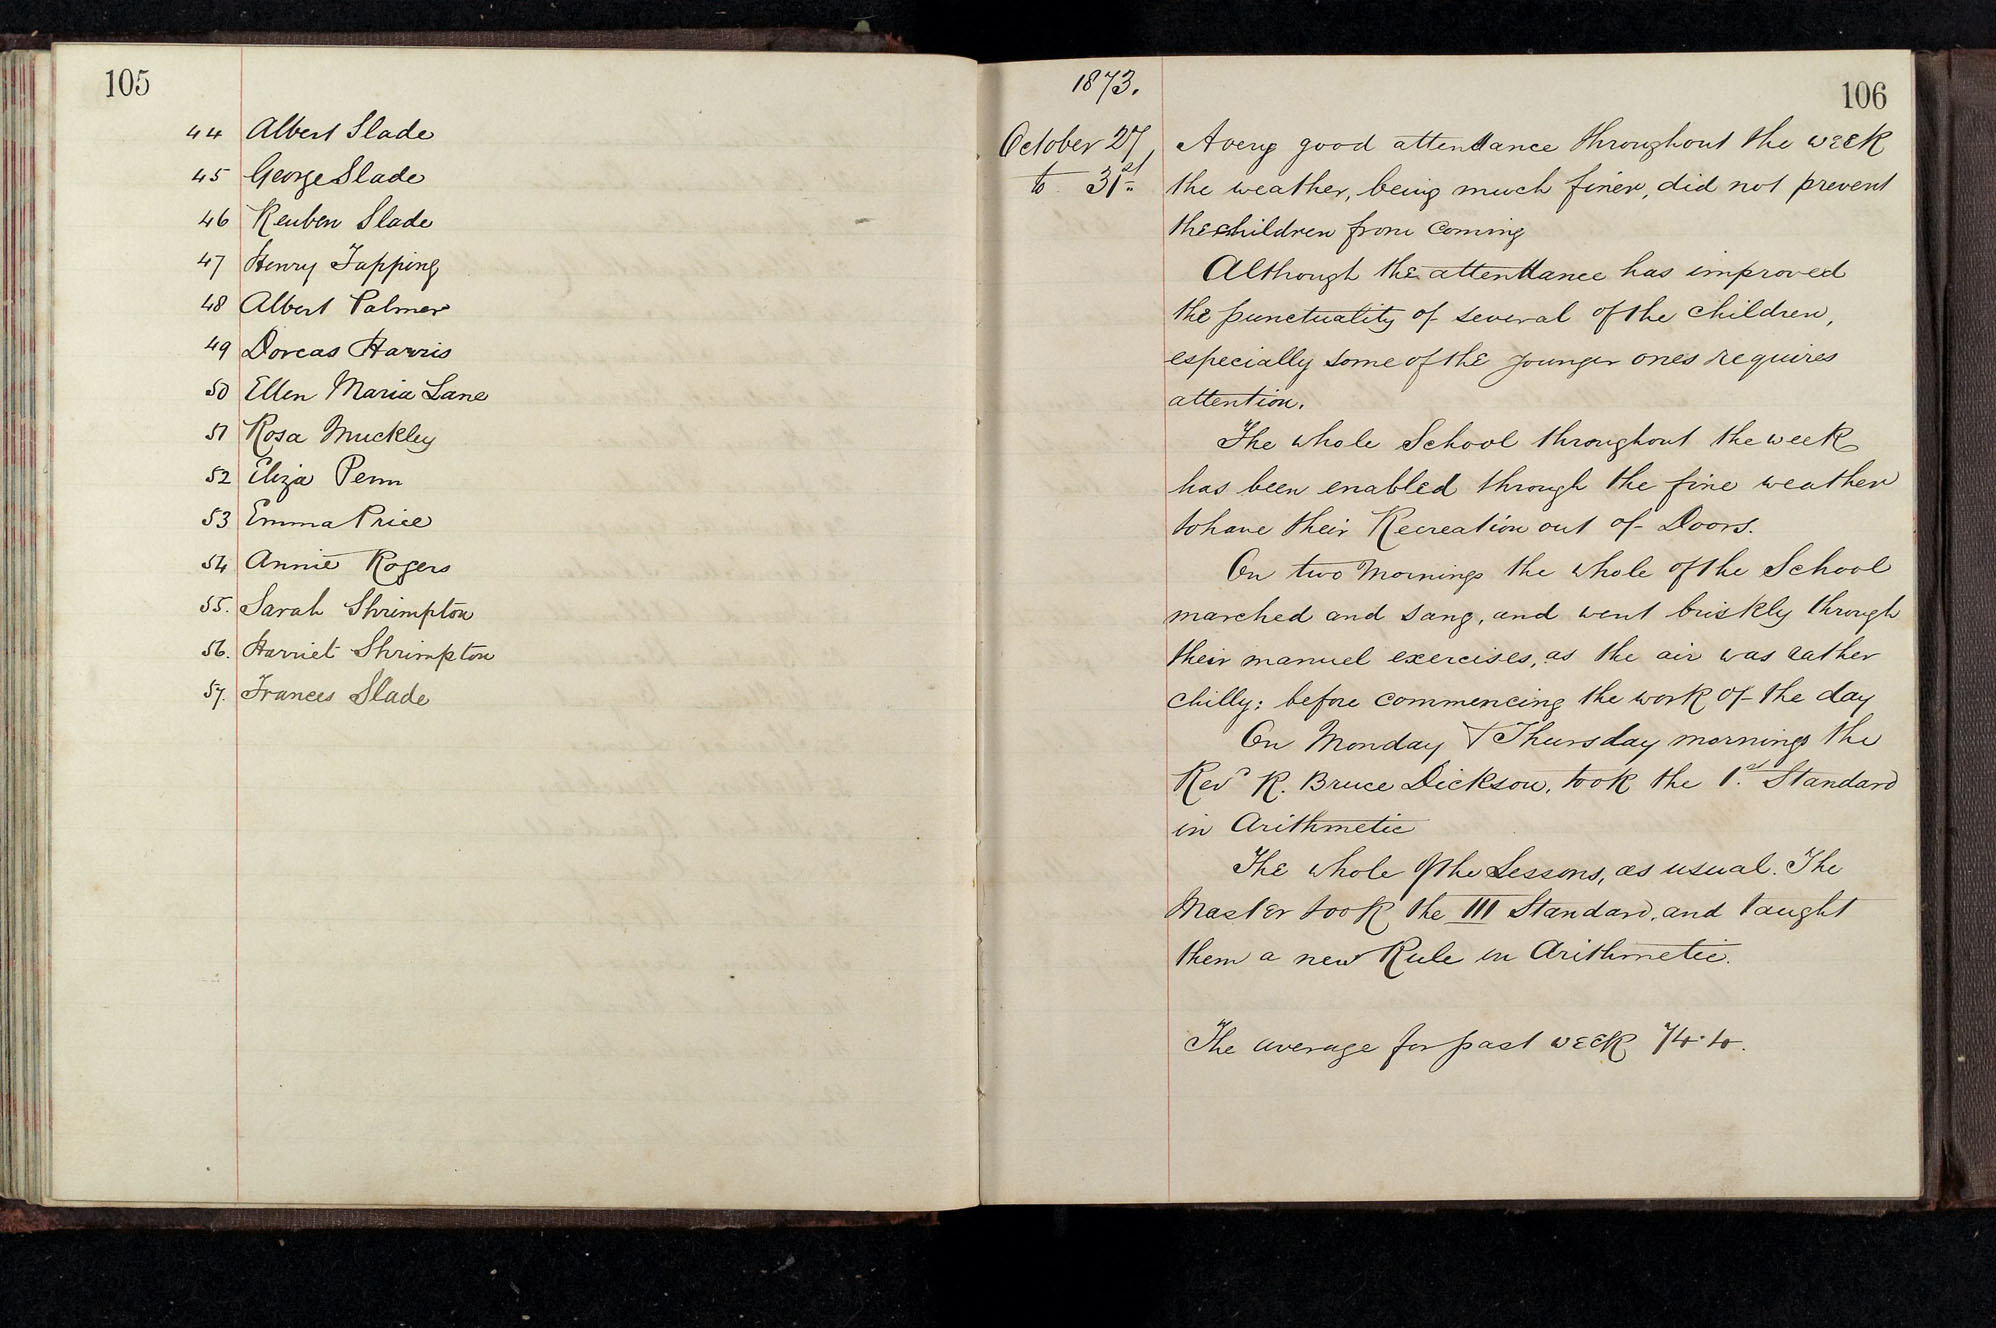 105
44 Albert Slade
45 George Slade
46 Reuben Slade
47 Henry Tapping
48 Albert Palmer
49 Dorcas Harris
50 Ellen Maria Lane
51 Rosa Muckley
52 Eliza Penn
53 Emma Price
54 Annie Rogers
55. Sarah Shrimpton
56. Harriet Shrimpton
57. Frances Slade
1873.
106
October 27,
to 31st
A very good attendance throughout the week
the weather, being much finer, did not prevent
the children from coming
Although the attendance has improved
the punctuality of several of the children,
especially some of the younger ones requires
attention.
The whole School throughout the week
has been enabled through the fine weather
to have their Recreation out of Doors.
On two Mornings the whole of the School
marched and sang, and went briskly through
their manuel exercises, as the air was rather
chilly: before commencing the work of the day
On Monday & Thursday mornings the
Revd R. Bruce Dickson, took the 1.st Standard
in Arithmetic
The whole of the Lessons, as usual. The
Master took the III Standard, and taught
them a new Rule in Arithmetic.
The average for past week 74.4.